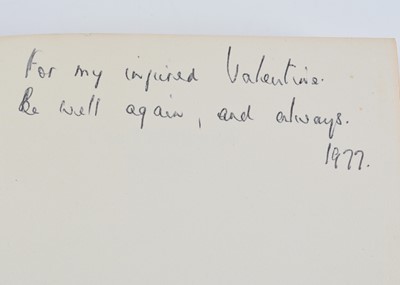 For my injured Valentine.
Be well again, and always.
1977.